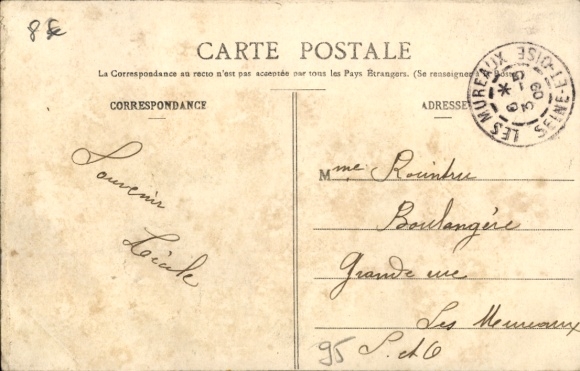 8€
CARTE POSTALE
La Correspondance au recto n'est pas acceptée par tous les Pays Étrangers. (Se renseigner à la Poste)
CORRESPONDANCE
ADRESSE
LES MUREAUX SEINE-ET-OISE
6 * 5-
3
09
Souvenir
Mme
Boulangère
Grande rue
Les Mureaux
S. et O
95